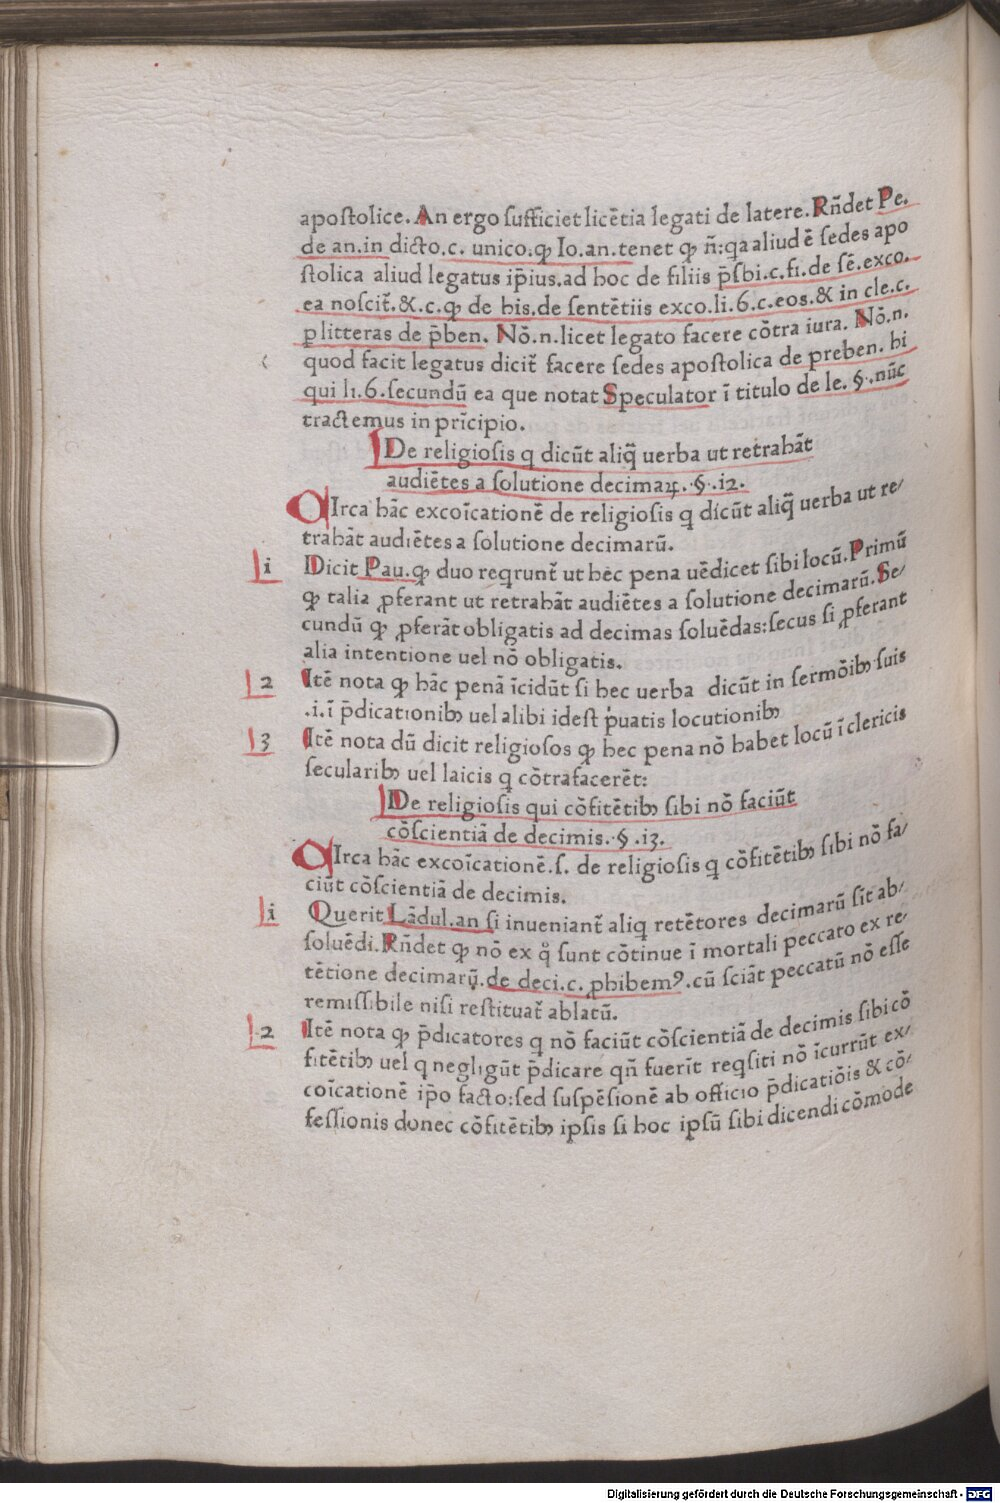 apoſtolice. An ergo ſufficiet licẽtia legati de latere. Rñdet Pe.
de an. in dicto. c. unico. ꝙ Io. an. tenet ꝙ ñ: qa aliud ẽ ſedes apo
ſtolica aliud legatus ip̃ius. ad hoc de filiis p̃ſbi. c. fi. de ſẽ. exco.
ea noſcit̃. & .c. ꝙ de his. de ſentẽtiis exco. li. 6. c. eos. & in cle. c.
ꝑ litteras de p̃ben. Nõ. n. licet legato facere cõtra iura. Nõ. n.
quod facit legatus dicit̃ facere ſedes apoſtolica de preben. hi
qui li. 6. ſecundũ ea que notat Speculator ĩ titulo de le. §. nũc
tractemus in prĩcipio.
De religioſis q dicũt aliq̃ uerba ut retrahãt
audiẽtes a ſolutione decimaꝝ. §. 12.
CIrca hãc excoĩcationẽ de religioſis q dicũt aliq̃ uerba ut re/
trahãt audiẽtes a ſolutione decimarũ.
1 Dicit Pau. ꝙ duo reqrunt̃ ut hec pena uẽdicet ſibi locũ. Primũ
ꝙ talia ꝓferant ut retrahãt audiẽtes a ſolutione decimarũ. Se/
cundũ ꝙ ꝓferãt obligatis ad decimas ſoluẽdas: ſecus ſi ꝓferant
alia intentione uel nõ obligatis.
2 Itẽ nota ꝙ hãc penã ĩcidũt ſi hec uerba dicũt in ſermõibꝫ ſuis
.i. ĩ p̃dicationibꝫ uel alibi ideſt puatis locutionibꝫ
3 Itẽ nota dũ dicit religioſos ꝙ hec pena nõ habet locũ ĩ clericis
ſecularibꝫ uel laicis q cõtrafacerẽt:
De religioſis qui cõfitẽtibꝫ ſibi nõ faciũt
cõſcientiã de decimis. §. 13.
CIrca hãc excoĩcationẽ. ſ. de religioſis q cõfitẽtibꝫ ſibi nõ fa/
ciũt cõſcientiã de decimis.
1 Querit Lãdul. an ſi inueniant̃ aliq retẽtores decimarũ ſĩt ab/
ſoluẽdi. Rñdet ꝙ nõ ex qͦ ſunt cõtinue ĩ mortali peccato ex re/
tẽtione decimarũ. de deci. c. ꝓhibemꝰ. cũ ſciãt peccatũ nõ eſſe
remiſſibile niſi reſtituat̃ ablatũ.
2 Itẽ nota ꝙ p̃dicatores q nõ faciũt cõſcientiã de decimis ſibi cõ
fitẽtibꝫ uel q negligũt p̃dicare qñ fuerĩt reqſiti nõ ĩcurrũt ex/
coĩcationẽ ip̃o facto: ſed ſuſpẽſionẽ ab officio p̃dicatiõis & cõ/
feſſionis donec cõfitẽtibꝫ ipſis ſi hoc ipſũ ſibi dicendi cõmode
Digitalisierung gefördert durch die Deutsche Forschungsgemeinschaft - DFG